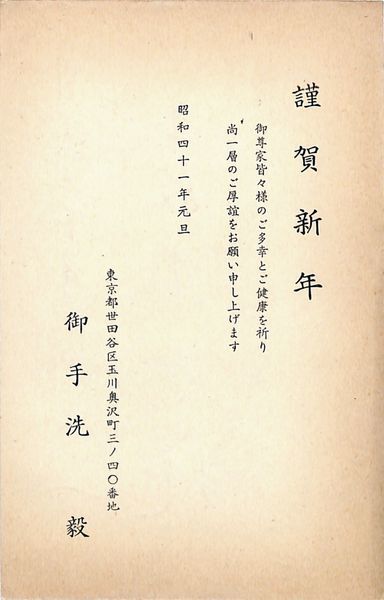 謹賀新年
御尊家皆々様のご多幸とご健康を祈り
尚一層のご厚誼をお願い申し上げます
昭和四十一年元旦
東京都世田谷区玉川奥沢町三ノ四〇番地
御手洗毅